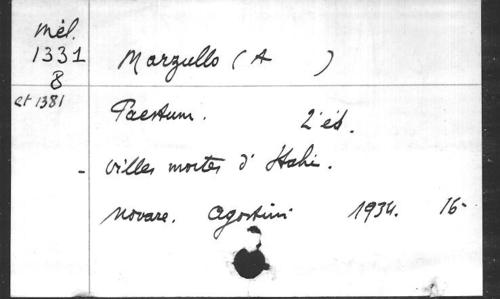 Mél.
1331
8
et 1381
Marzullo (A )
Paestum. 2' éd.
- Villes mortes d' Itali.
Novare. Agostini 1934. 16-